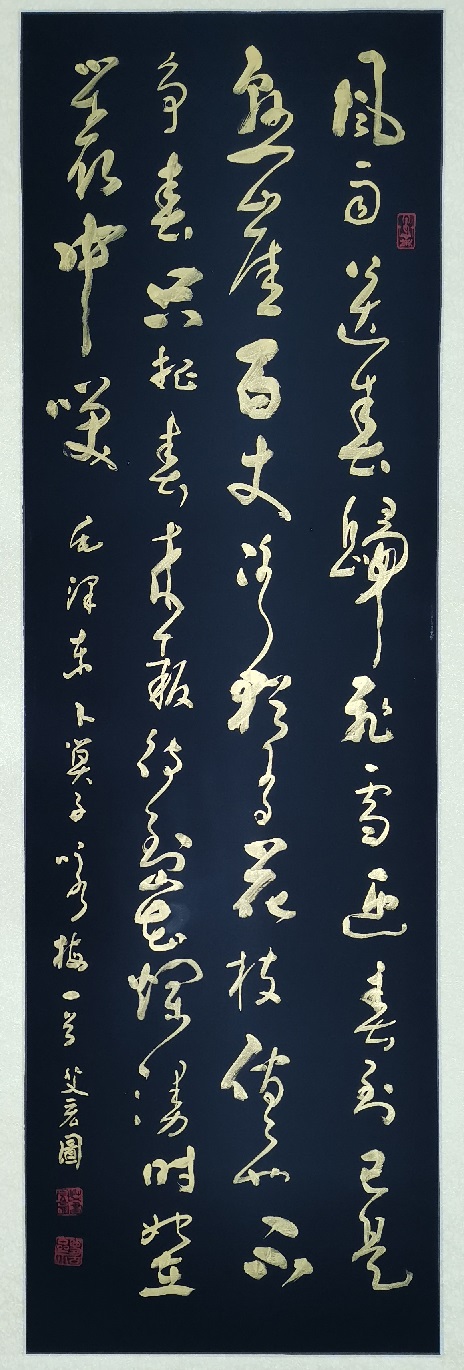 風雨送春歸飛雪迎春到已是
懸崖百丈冰猶有花枝俏々也不
争春只把春来報待到山花爛漫时她在
叢中笑 毛澤东卜算子咏梅一首